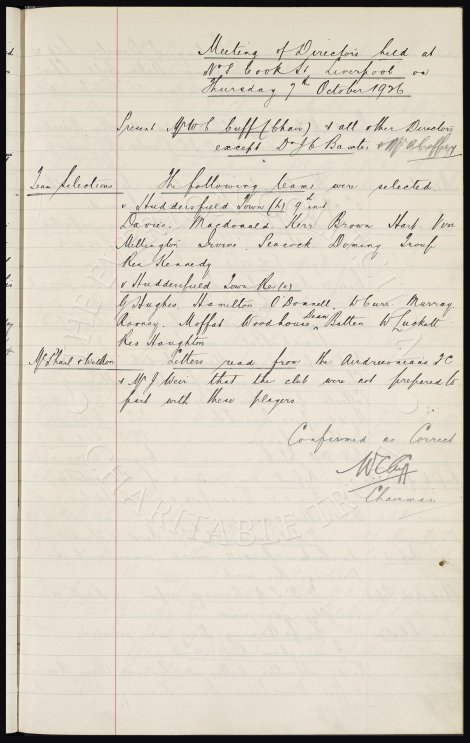 Meeting of Directors held at
No 8 Cook St Liverpool on
Thursday 7th October 1926
Present Mr W C Cuff (Chair) & all other Directors
except Dr J C Baxter & Mr A Coffey
Team Selections The following teams were selected
v Huddersfield Town (h) 9th inst
Davies. Macdonald Kerr Brown Hart Virr
Millington Irvine Peacock Dominy Troup
Res Kennedy
v Huddersfield Town Res (a)
G Hughes Hamilton O'Donnell W Curr Murray
Rooney. Moffat Woodhouse Dean Batten W Luckett
Res Houghton
McPhail & Weldon Letters read from the Airdrieonians FC
& Mr J Weir that the club were not prepared to
part with these players
Confirmed as Correct
W C Cuff
Chairman
CHARITABLE TR